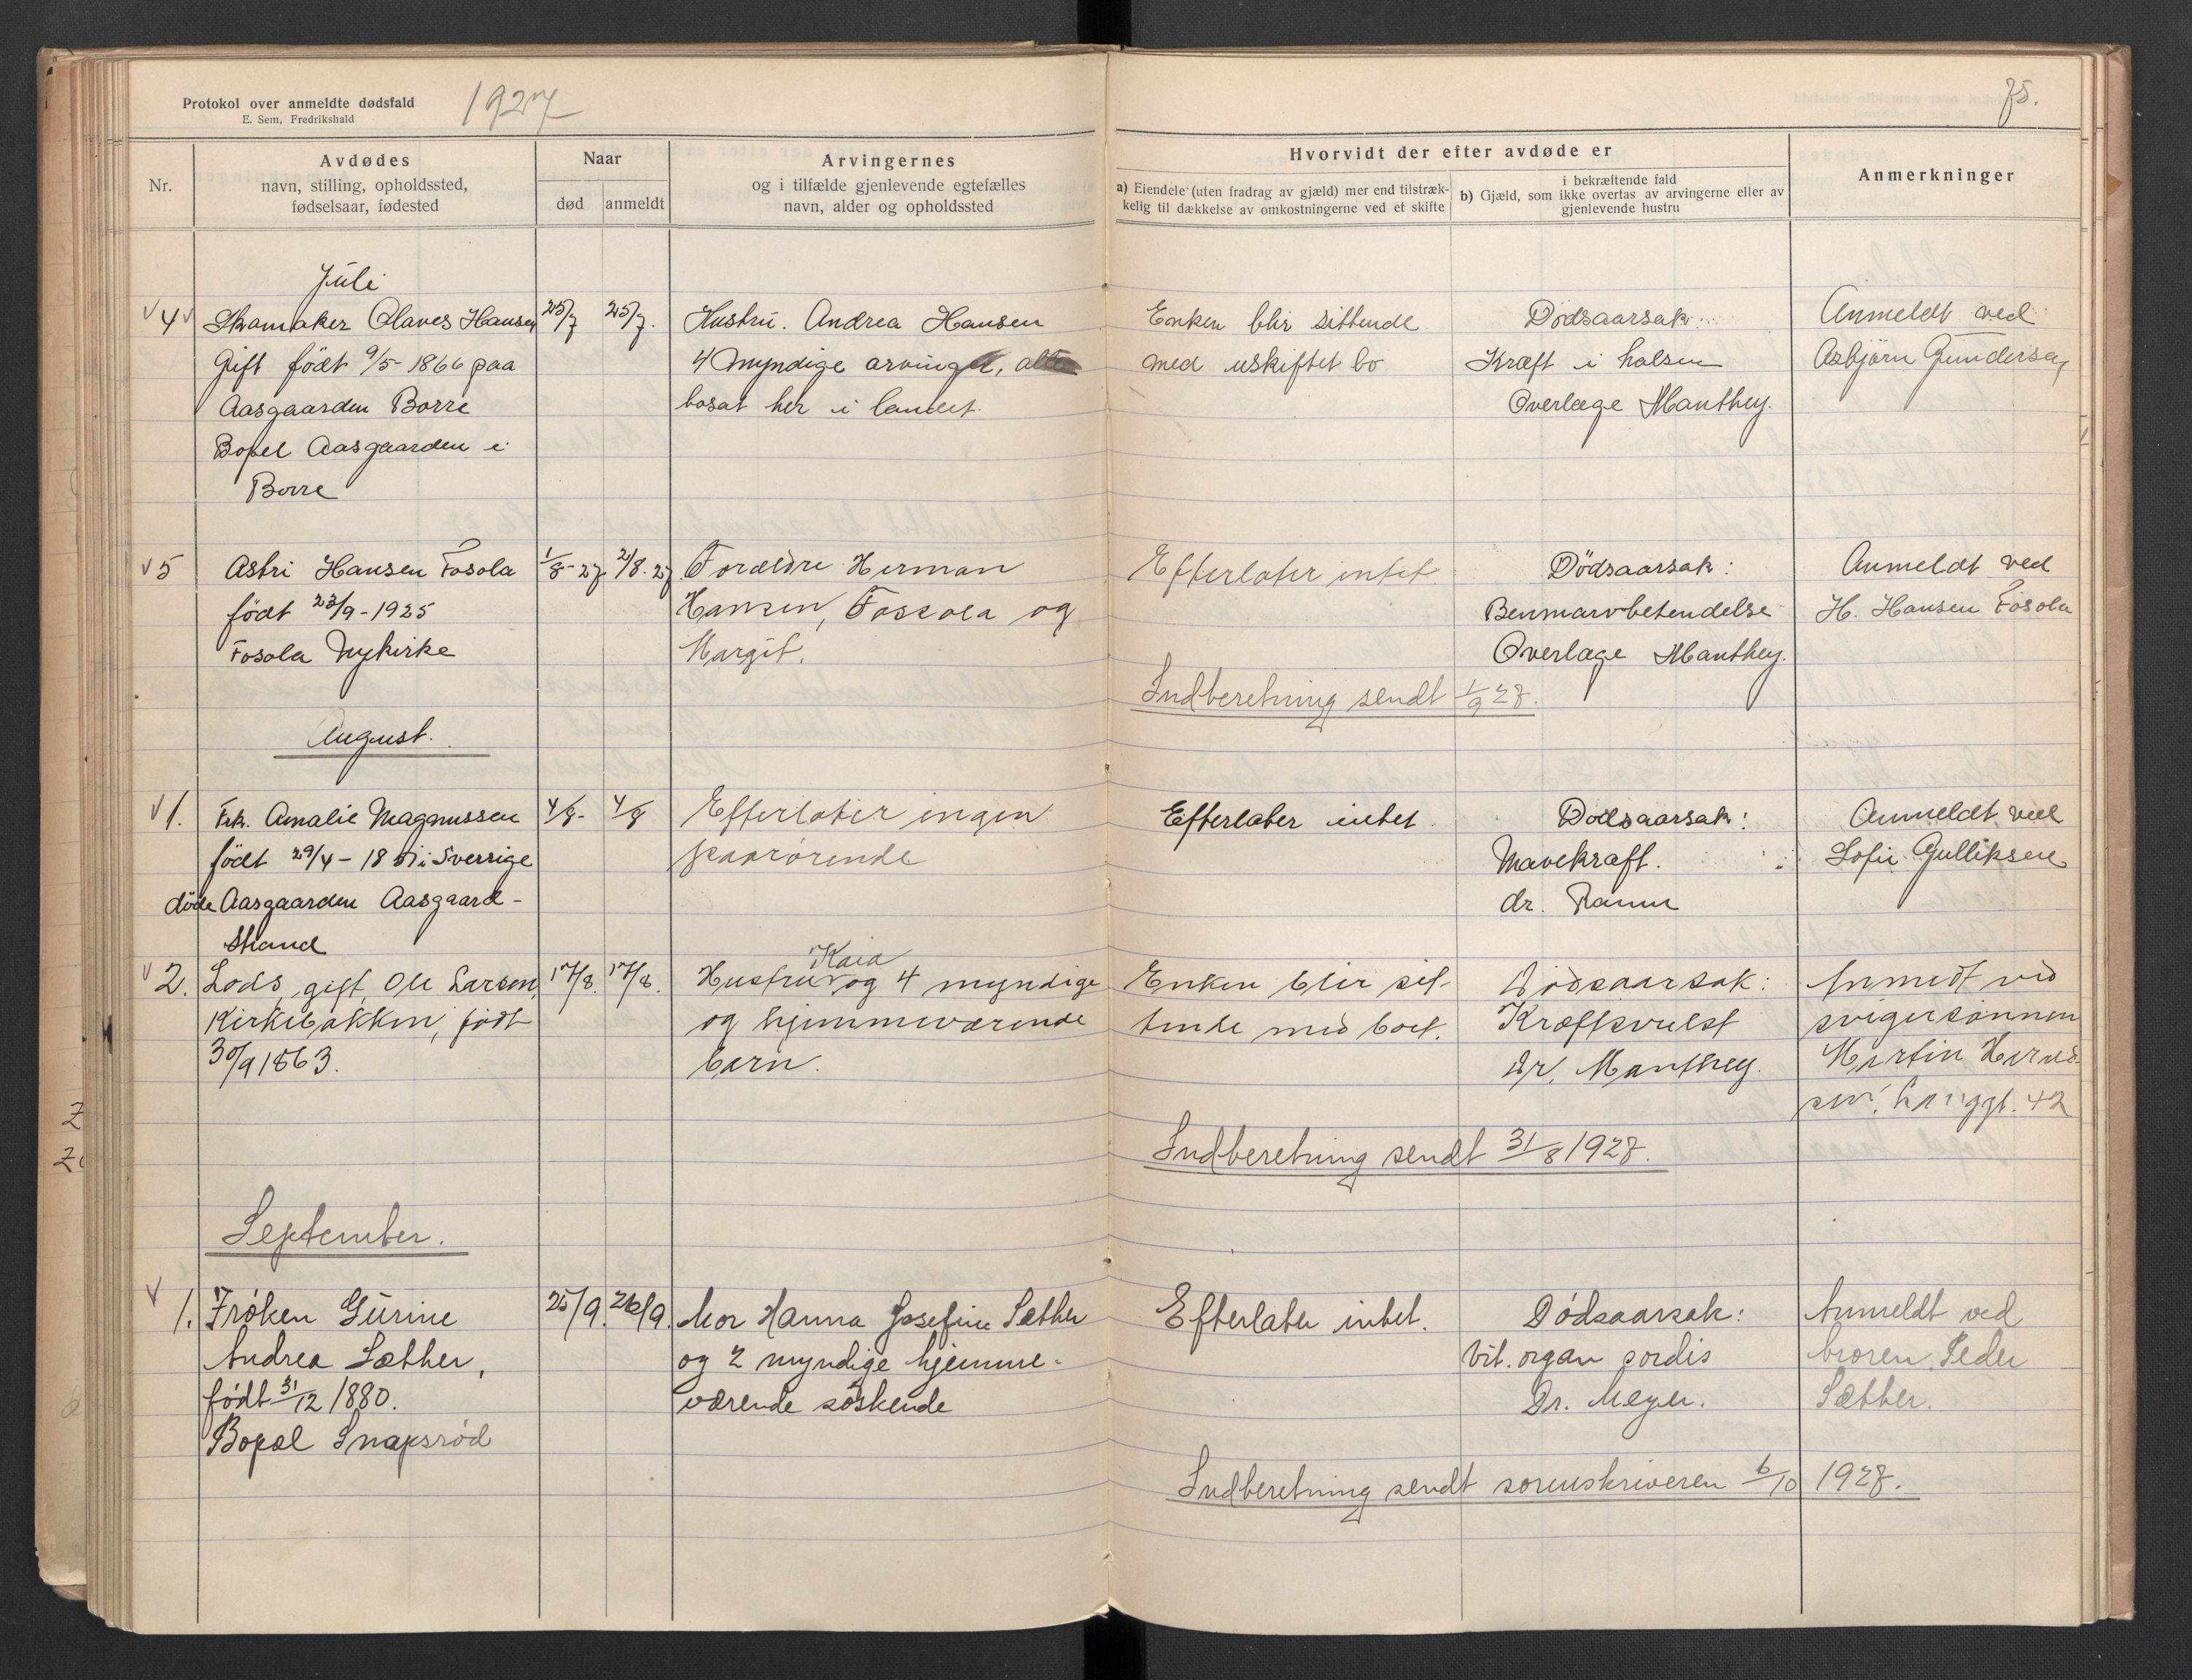 Protokol over anmeldte dødsfald
E. Sem, Fredrikshald
1927
75.
Nr.
Avdødes
navn, stilling, opholdssted,
fødselsaar, fødested
Naar
død
anmeldt
Arvingernes
og i tilfælde gjenlevende egtefælles
navn, alder og opholdssted
Hvorvidt der efter avdøde er
a) Eiendele (uten fradrag av gjæld) mer end tilstræk-
kelig til dækkelse av omkostningerne ved et skifte
i bekræftende fald
b) Gjæld, som ikke overtas av arvingerne eller av
gjenlevende hustru
Anmerkninger
Juli
4
Skomaker Olaves Hansen
Gift født 9/5-1866 paa
Aasgaarden Borre
Bopel Aasgaarden i
Borre
25/7
25/7.
Hustru. Andrea Hansen
4 myndige arvinger, alle
bosat her i landet.
Enken blir sittende
med uskiftet bo
Dødsaarsak:
Kræft i halsen
Overlæge Manthey.
Anmeldt ved
Asbjørn Gundersen
5
Astri Hansen Fosola
født 23/9-1925
Fosola Nykirke
1/8-27
2/8.27
Forældre Herman
Hansen, Fossola og
Margit.
Efterlater intet
Dødsaarsak:
Benmarvbetendelse
Overlæge Manthey.
Anmeldt ved
H. Hansen Fosola
Indberetning sendt 1/9 27.
August.
1.
Frk. Amalie Magnussen
født 29/4-1851 i Sverrige
døde Aasgaarden Aasgaard-
strand
4/8-
4/8
Efterlater ingen
paarørende
Efterlater intet
Dødsaarsak:
Mavekræft.
dr. Ramm
Anmeldt ved
Sofie Gulliksen
2.
Lods, gift, Ole Larsen,
Kirkebakken, født
30/9 1863.
17/8.
17/8.
Kaia
Hustru og 4 myndige
og hjemmeværende
barn.
Enken blir sit-
tende med boet.
Dødsaarsak:
Kræftsvulst
Dr. Manthey.
Anmedt ved
svigersønnen
Martin Hernd-
Langgt. 42
Indberetning sendt 31/8 1927.
September.
1.
Frøken Gurine
Andrea Sæther,
født 31/12 1880.
Bopæl Snapsrød
25/9.
26/9.
Mor Hanna Josefine Sæther
og 2 myndige hjemme-
værende søskende
Efterlater intet.
Dødsaarsak:
Vit. organ cordis
Dr. Meyer.
Anmeldt ved
broren Peder
Sæther.
Indberetning sendt sorenskriveren 6/10 1927.